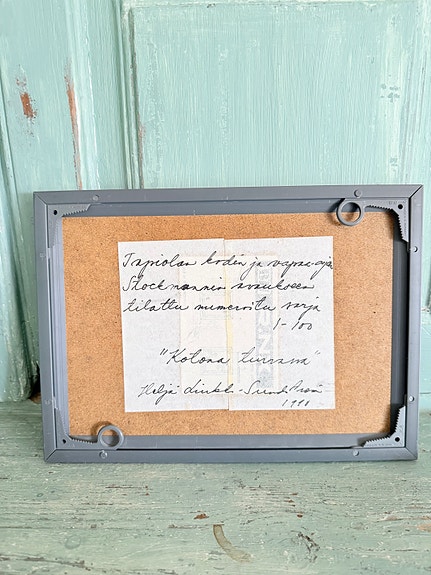 Tapiolan kodin ja vapaa-ajan
Stockmannin avaukseen
tilattu numeroitu sarja
1-100
"Kotona turvassa"
Heljä Liukko-Sundström